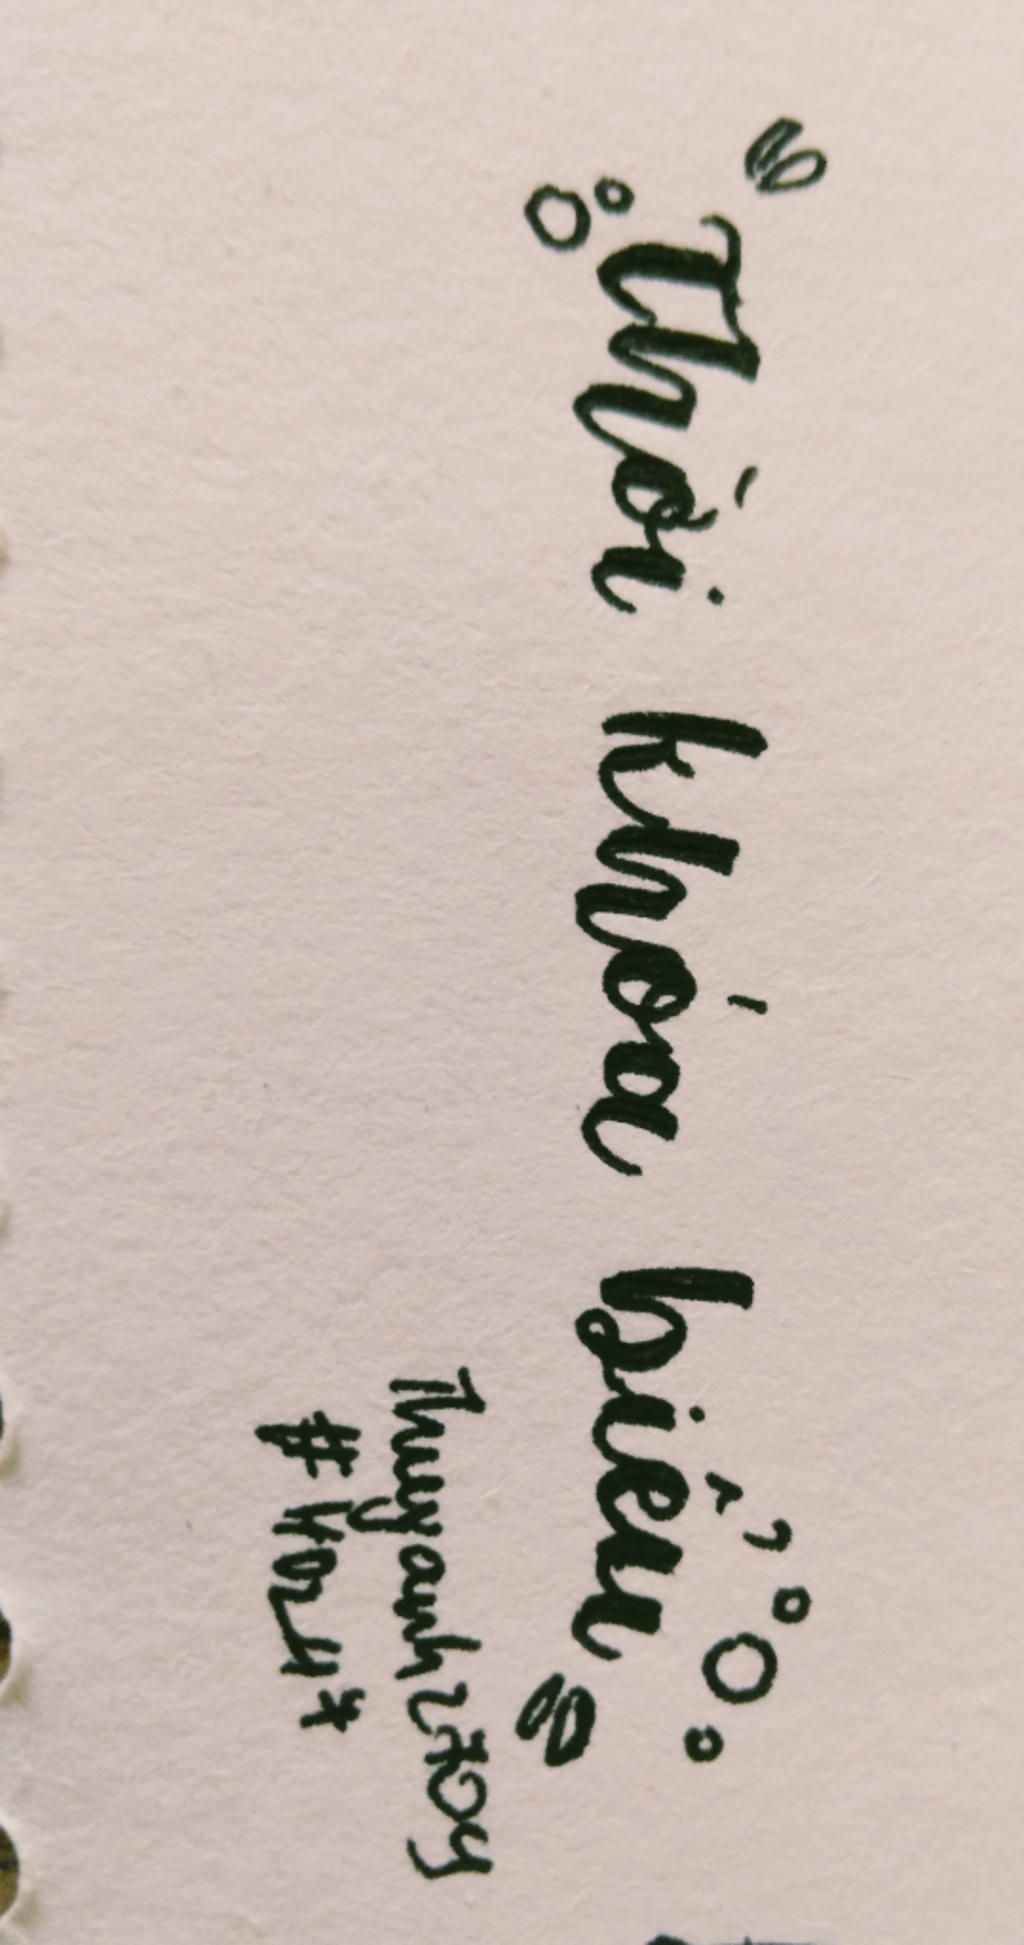 Thời khóa biểu
Thuyanh2704